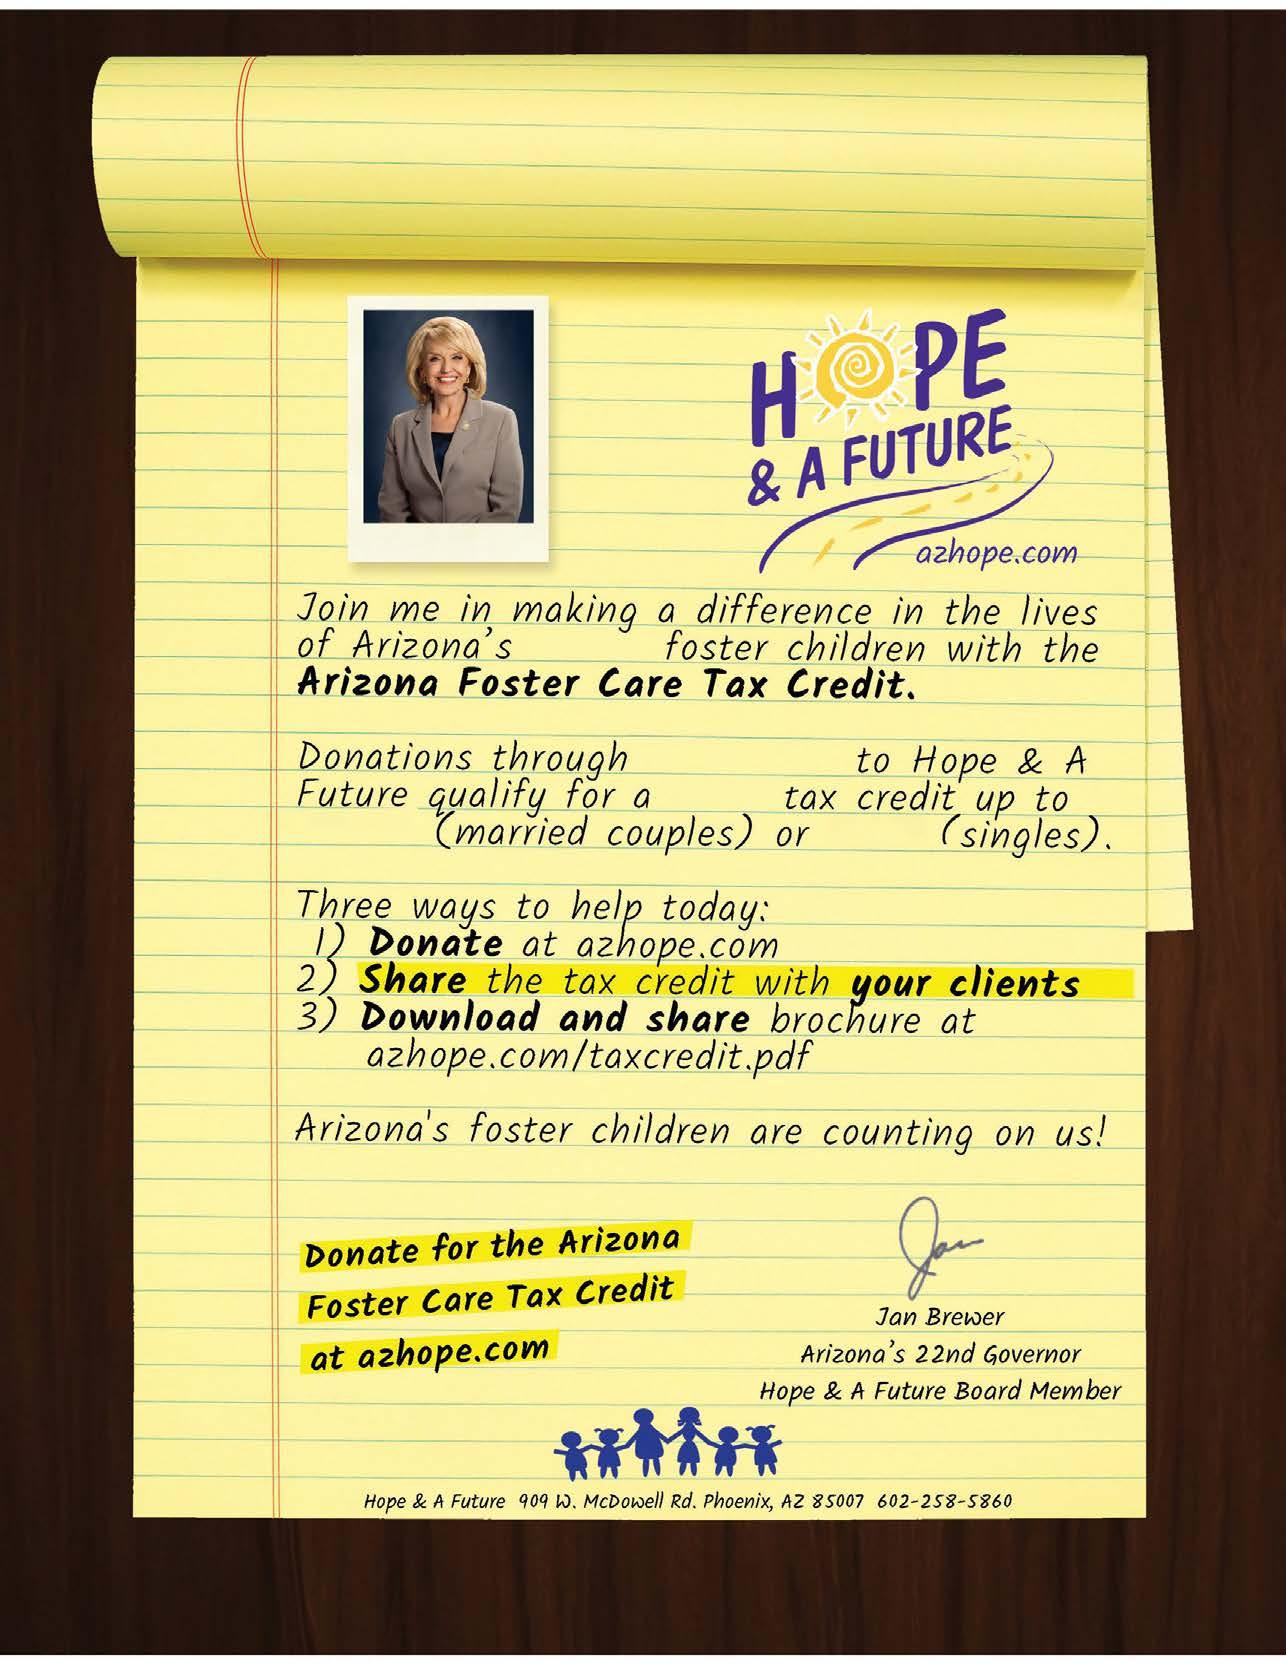 HOPE
& A FUTURE
azhope.com
Join me in making a difference in the lives
of Arizona's foster children with the
Arizona Foster Care Tax Credit.
Donations through to Hope & A
Future qualify for a tax credit up to
(married couples) or (singles).
Three ways to help today:
1) Donate at azhope.com
2) Share the tax credit with your clients
3) Download and share brochure at
azhope.com/taxcredit.pdf
Arizona's foster children are counting on us!
Donate for the Arizona
Foster Care Tax Credit
at azhope.com
Jan
Jan Brewer
Arizona's 22nd Governor
Hope & A Future Board Member
Hope & A Future 909 W. McDowell Rd. Phoenix, AZ 85007 602-258-5860